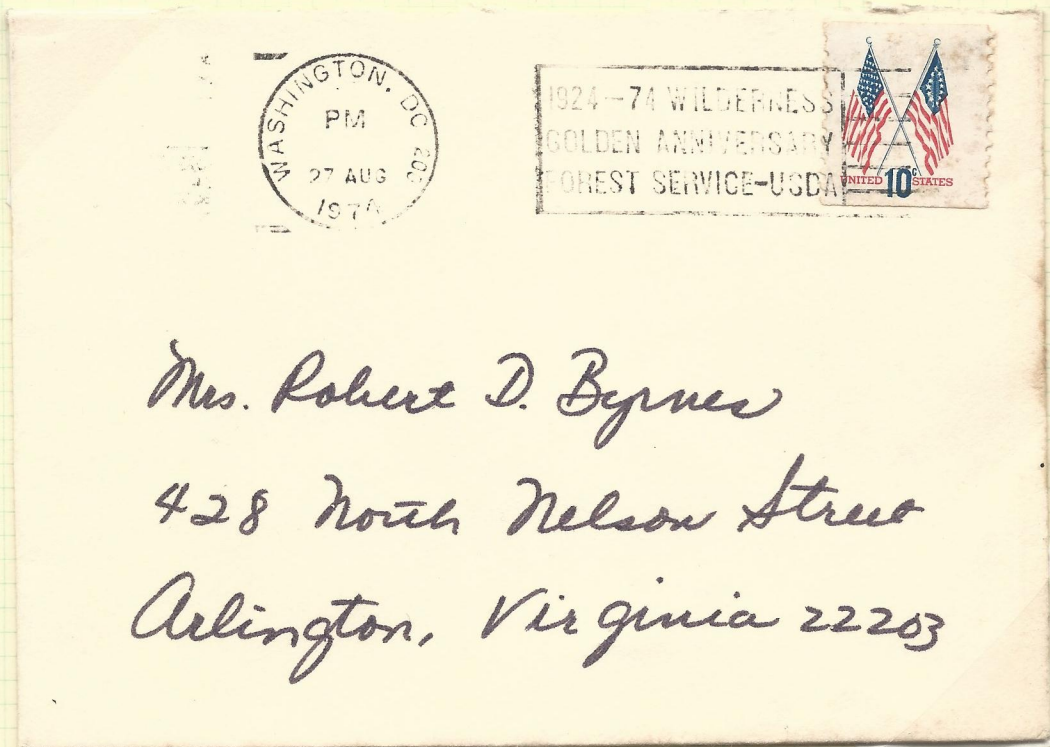 WASHINGTON, DC 200
PM
27 AUG
1974
1924-74 WILDERNESS
GOLDEN ANNIVERSARY
FOREST SERVICE-USDA
UNITED 10c STATES
Mrs. Robert D. Byrnes
428 North Nelson Street
Arlington, Virginia 22203